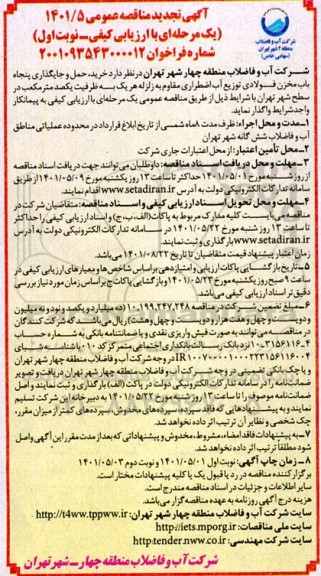 شرکت آب و فاضلاب
منطقه ۴ شهر تهران
(سهامی خاص)
آگهی تجدید مناقصه عمومی ۱۴۰۱/۵
(یک مرحله‌ای با ارزیابی کیفی – نوبت اول)
شماره فراخوان ۲۰۰۱۰۹۳۵۴۳۰۰۰۰۱۲
شرکت آب و فاضلاب منطقه چهار شهر تهران در نظر دارد خرید، حمل و جایگذاری پنجاه
باب مخزن فولادی توزیع آب اضطراری مقاوم به زلزله هر یک به ظرفیت یکصد متر مکعب در
سطح شهر تهران با شرایط ذیل از طریق مناقصه عمومی یک مرحله‌ای با ارزیابی کیفی به پیمانکار
واجد شرایط واگذار نماید.
۱– مدت و محل اجرا: ظرف مدت ۸ماه شمسی از تاریخ ابلاغ قرارداد در محدوده عملیاتی مناطق
آب و فاضلاب شش گانه شهر تهران
۲– محل تأمین اعتبار: از محل اعتبارات جاری شرکت
۳– مهلت و محل دریافت اسناد مناقصه: داوطلبان می‌توانند جهت دریافت اسناد مناقصه
از روز شنبه مورخ ۱۴۰۱/۰۵/۰۱ حداکثر تا ساعت ۱۳ روز یکشنبه مورخ ۱۴۰۱/۰۵/۰۹ از طریق
سامانه تدارکات الکترونیکی دولت به آدرس www.setadiran.ir اقدام نمایند.
۴– مهلت و محل تحویل اسناد ارزیابی کیفی و اسناد مناقصه: متقاضیان شرکت در
مناقصه می‌بایست کلیه مدارک مربوط به پاکات (الف، ب، ج) و اسناد ارزیابی کیفی را حداکثر
تا ساعت ۱۳ روز شنبه مورخ ۱۴۰۱/۰۵/۲۲ در سامانه تدارکات الکترونیکی دولت به آدرس
www.setadiran.ir بارگذاری و ثبت نمایند.
زمان اعتبار پیشنهاد قیمت متقاضیان تا تاریخ ۱۴۰۱/۰۸/۲۲ می‌باشد.
۵– تاریخ بازگشایی پاکات ارزیابی و امتیازدهی براساس شاخص‌ها و معیارهای ارزیابی کیفی در
ساعت ۹ صبح روز یکشنبه مورخ ۱۴۰۱/۰۵/۲۳ و بازگشایی پاکات ج براساس زمان مورد نیاز بررسی
دقیق تر اسناد ارزیابی کیفی می‌باشد.
۶– مبلغ تضمین شرکت در مناقصه ۱۰,۱۹۹,۲۴۷,۲۴۸ (ده میلیارد و یکصد و نود و نه میلیون
و دویست و چهل و هفت هزار و دویست و چهل و هشت) ریال می‌باشد که شرکت کنندگان
در مناقصه می‌توانند به صورت فیش واریز نقدی و یا ضمانتنامه بانکی به شماره حساب
در وجه شرکت آب و فاضلاب منطقه چهار شهر تهران
و یا چک بانکی تضمینی در وجه شرکت آب و فاضلاب منطقه چهار شهر تهران دریافت و تصویر
ضمانت‌نامه را در سامانه تدارکات الکترونیکی دولت در پاکت (الف) بارگذاری و ثبت نمایند و اصل
ضمانت‌نامه موصوف را تا ساعت ۱۳ روز شنبه مورخ ۱۴۰۱/۰۵/۲۲ به دبیرخانه این شرکت تسلیم
نمایند و به پیشنهادهایی که فاقد سپرده، سپرده‌های مخدوش، سپرده‌های کمتر از میزان مقرر،
چک شخصی و نظایر آن ترتیب اثر داده نخواهد شد.
۷– به پیشنهادات فاقد امضاء، مشروط، مخدوش و پیشنهاداتی که بعد از مدت مقرر این آگهی واصل
شود مطلقاً ترتیب اثر داده نخواهد شد.
۸– زمان چاپ آگهی: نوبت اول ۱۴۰۱/۰۵/۰۱ و نوبت دوم ۱۴۰۱/۰۵/۰۳
برگزار کننده مناقصه در رد یا قبول یک یا کلیه پیشنهادات مختار است.
سایر اطلاعات و جزئیات در اسناد مناقصه مندرج است.
هزینه درج آگهی روزنامه به عهده مناقصه‌گزار می‌باشد.
سایت شرکت آب و فاضلاب منطقه چهار شهر تهران: http://t4ww.tppww.ir
سایت ملی مناقصات: http://iets.mporg.ir
سایت شرکت مهندسی: http:tender.nww.co.ir
شرکت آب و فاضلاب منطقه چهار – شهر تهران